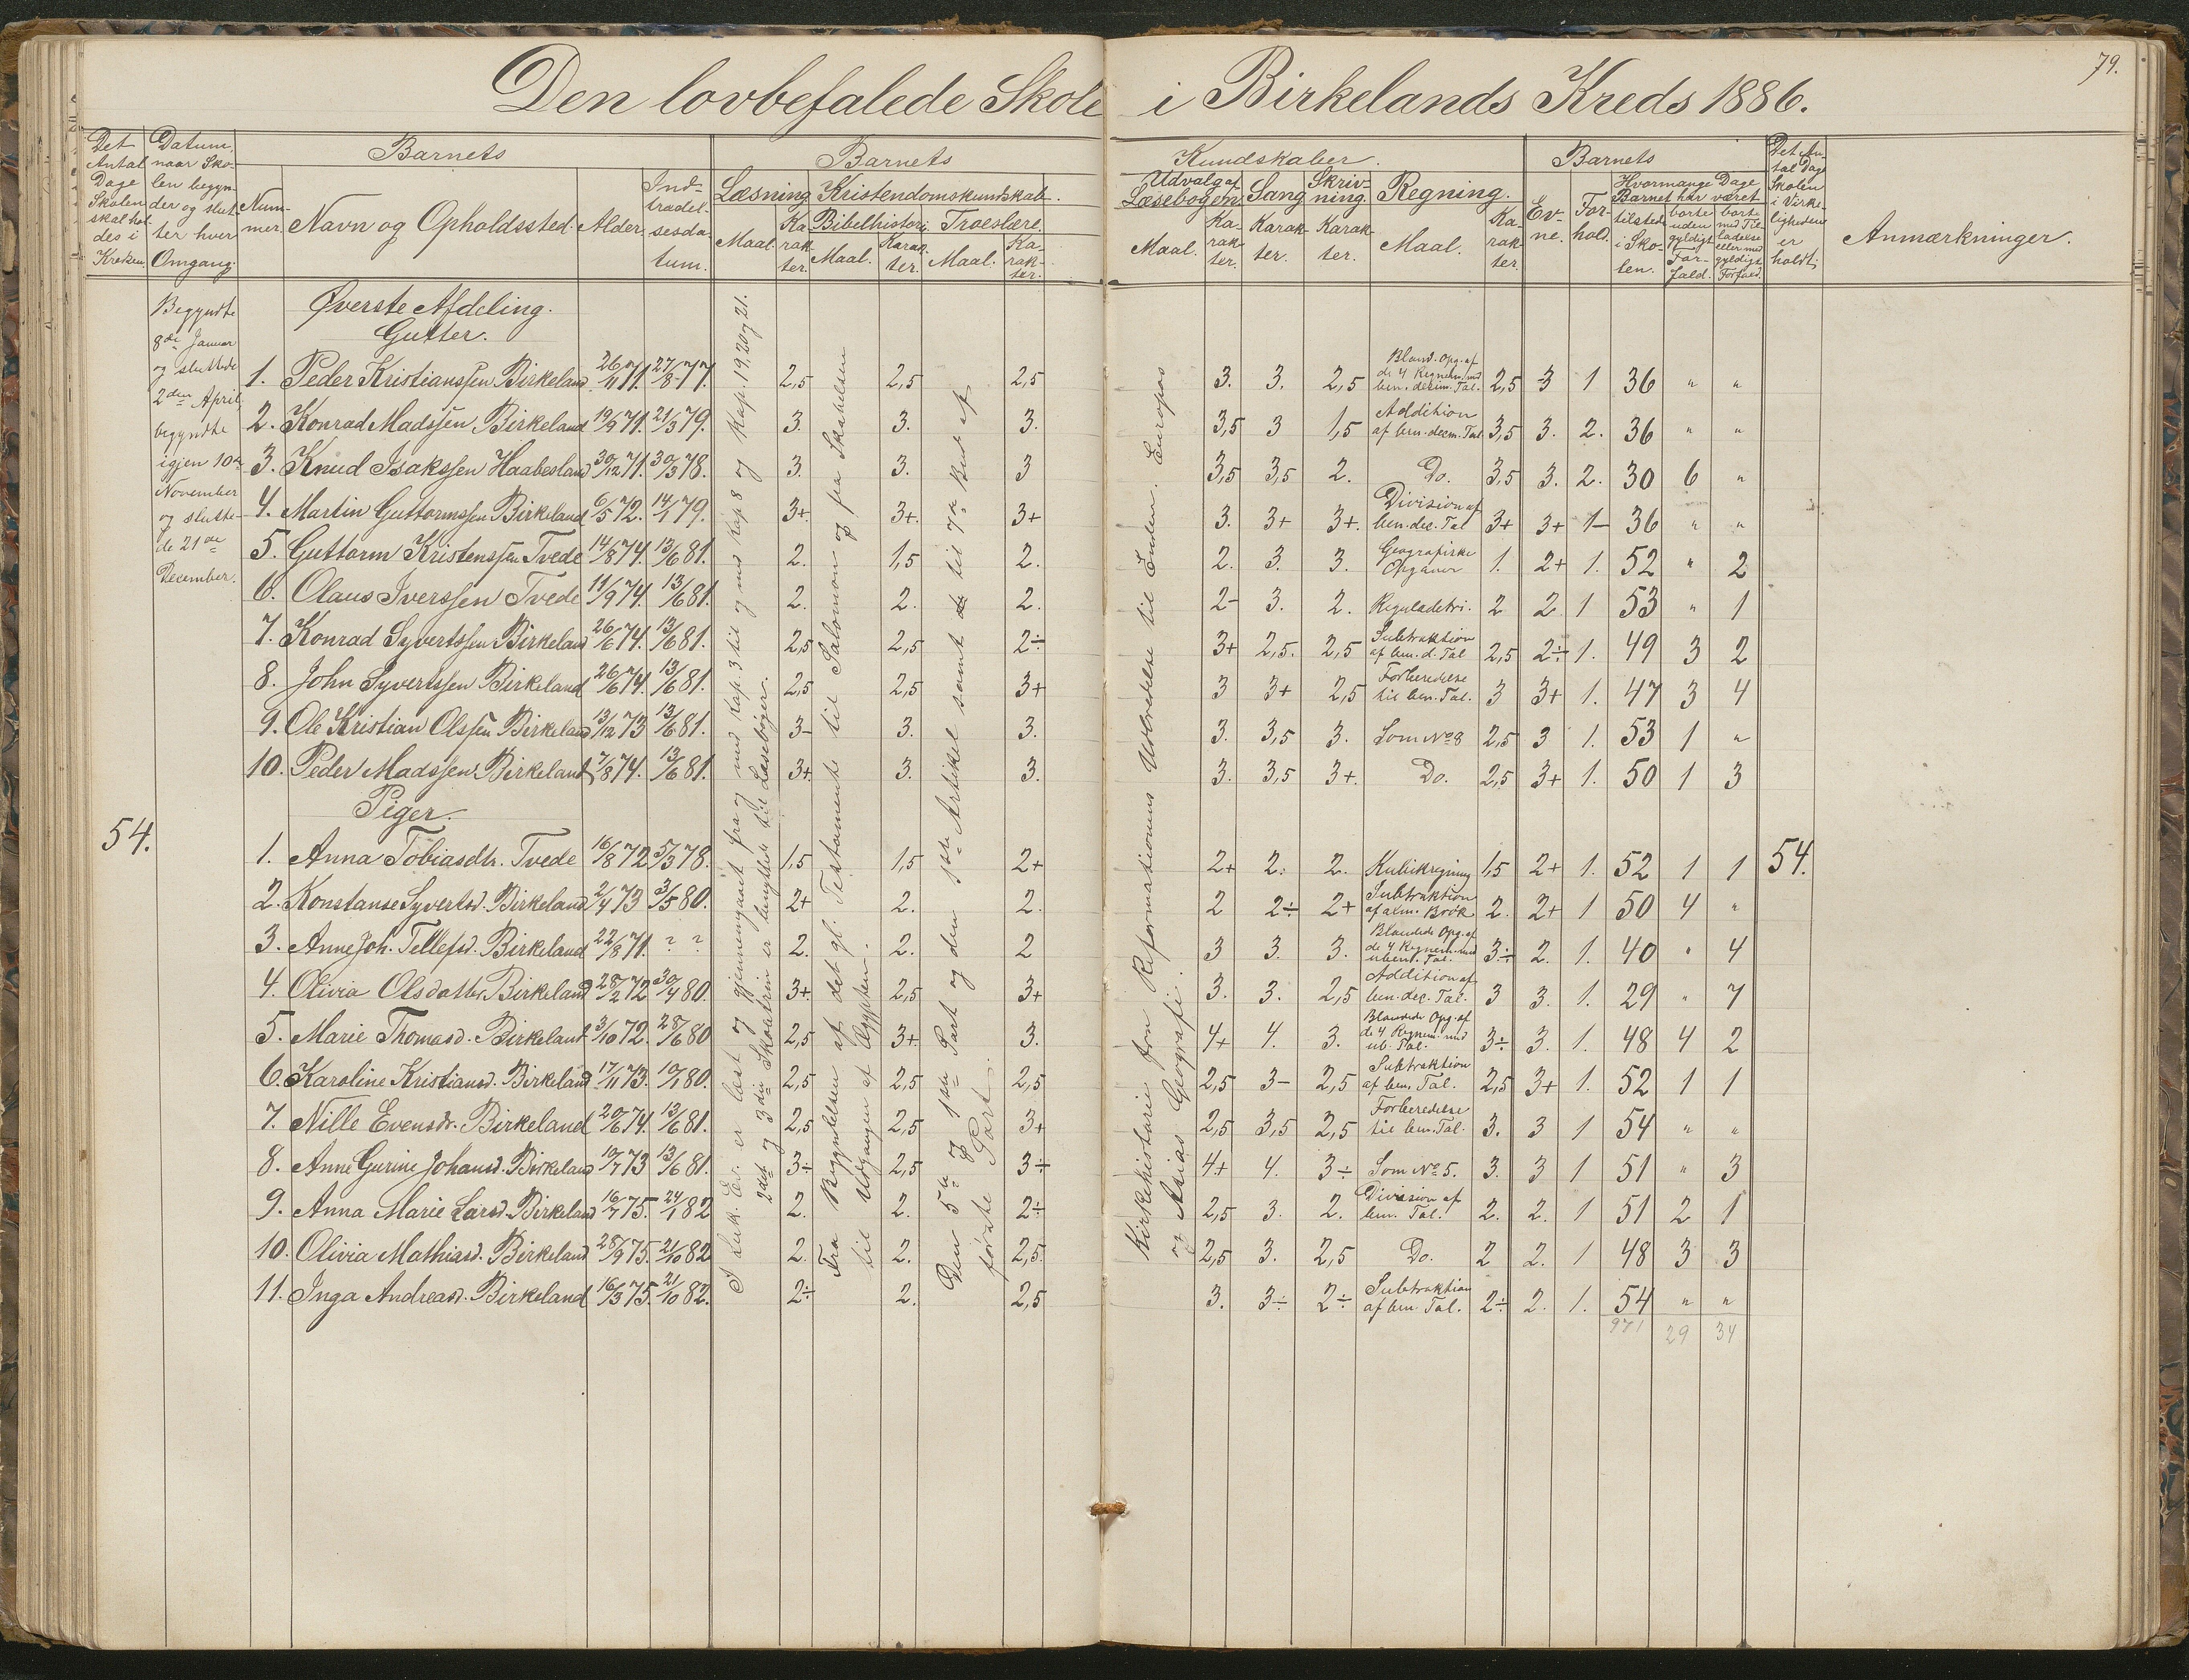 79.
Den lovbefalede Skole i Birkelands Kreds 1886.
Det Antal Dage Skolen skal holdes i Kredsen.
Datum, naar Skolen begynder og slutter hver Omgang.
Barnets
Nummer.
Navn og Opholdssted.
Alder.
Indtrædelsesdatum.
Barnets Kundskaber.
Læsning.
Maal. Karakter.
Kristendomskundskab.
Bibelhistorie.
Maal. Karakter.
Troeslære.
Maal. Karakter.
Udvalg af Læsebogen.
Maal. Karakter.
Sang
Karakter.
Skrivning.
Karakter.
Regning.
Maal. Karakter.
Barnets
Evne.
Forhold.
Hvormange Dage Barnet har været
tilstede i Skolen.
borte uden gyldigt Forfald.
bort med Tilladelse eller med gyldigt Forfald.
Det Antal Dage Skolen i Virkeligheden er holdt.
Anmærkninger.
Begyndte
8de Januar
og sluttede
2den April,
begyndte
igjen 10de
November
og slutte-
de 21de
December.
54.
Øverste Afdeling.
Gutter.
I Luk. Ev. er læst og gjennemgaaet fra og med Kap. 3 til og med Kap 8 og Kap. 19, 20 og 21.
2det og 3die Skoletrin er benyttet til Læsebøger.
Fra Begyndelsen af det gl. Testamente til Salomon og fra Skabelsen
til Udgangen af Ægypten.
Den 5te og 1ste Part og den 1ste Artikel samt til 7de Bud af
første Part.
Kirkehistorie fra Reformationens Udbredelse til Enden. Europas
og Asias Geografi.
1. Peder Kristianssen Birkeland 26/11 71. 27/8 77. 2,5 2,5 2,5 3. 3. 2,5 Bland. Opg. af de 4 Regnem. med ben. decim. Tal. 2,5 3 1 36 " "
2. Konrad Madssen Birkeland 19/9 71. 21/3 79. 3. 3. 3. 3,5 3 1,5 Addition af ben. decm. Tal 3,5 3. 2. 36 " "
3. Knud Isakssen Haabesland 30/12 71. 30/3 78. 3. 3. 3 3,5 3,5 2. Do. 3,5 3. 2. 30 6 "
4. Martin Guttormssen Birkeland 6/5 72. 14/1 79. 3+. 3+. 3+ 3. 3+ 3+. Division af ben. dec. Tal 3+ 3+ 1- 36 " "
5. Guttorm Kristenssen Tvede 14/8 74. 13/6 81. 2. 1,5 2. 2. 3. 3. Geografiske Opgaver 1. 2+ 1. 52 " 2
6. Olaus Iverssen Tvede 11/9 74. 13/6 81. 2. 2. 2. 2- 3. 2. Reguladetri. 2 2 1 53 " 1
7. Konrad Syvertssen Birkeland 26/6 74. 13/6 81. 2,5 2,5 2÷ 3+ 2,5. 2,5 Subtraktion af ben. d. Tal 2,5 2÷ 1. 49 3 2
8. John Syvertssen Birkeland 26/6 74. 13/6 81. 2,5 2,5 3+ 3 3+ 2,5 Forberedelse til ben. Tal. 3 3+ 1. 47 3 4
9. Ole Kristian Olssen Birkeland 13/12 73 13/6 81. 3- 3. 3. 3. 3,5 3. Som No 8 2,5 3 1. 53 1 "
10. Peder Madssen Birkeland 7/8 74. 13/6 81. 3+. 3. 3. 3. 3,5 3+. Do. 2,5 3+ 1. 50 1 3
Piger.
1. Anna Tobiasdtr. Tvede 16/8 72 5/3 78. 1,5 1,5 2+ 2+ 2. 2. Kubikregning 1,5 2+ 1. 52 1 1 54.
2. Konstanse Syvertsd. Birkeland 2/4 73 3/5 80. 2+ 2. 2. 2 2÷ 2+ Subtraktion af alm. Brök 2. 2+ 1 50 4 "
3. Anne Joh. Tellefsd. Birkeland 22/8 71. ? ? 2. 2. 2 3 3. 3. Blandede Opg. af de 4 Regnem. med uben. Tal. 3÷ 2. 1. 40 " 4
4. Olivia Olsdatter Birkeland 28/2 72 30/4 80. 3+ 2,5 3+ 3. 3. 2,5 Addition af ben. dec. Tal. 3 3. 1. 29 " 7
5. Marie Thomasd. Birkeland 3/10 72. 28/6 80 2,5 3+. 3. 4+ 4. 3. Blandede Opg. af de 4 Regnem. med ub. Tal. 3÷ 3. 1. 48 4 2
6. Karoline Kristiansd. Birkeland 17/11 73. 19/1 80. 2,5 2,5 2,5 2,5 3- 2,5 Subtraktion af ben. Tal. 2,5 3+ 1. 52 1 1
7. Nille Evensdr. Birkeland 20/6 74. 13/6 81. 2,5 2,5 3+ 2,5 3,5 2,5 Forberedelse til ben. Tal. 3. 3 1 54 " "
8. Anne Gurine Johansd. Birkeland 19/7 73 13/6 81. 3÷ 2,5 3÷ 4+ 4. 3÷ Som No 5. 3. 3 1 51 " 3
9. Anna Marie Larsd. Birkeland 16/7 75. 24/1 82 2. 2. 2÷ 2,5 3. 2. Division af ben. Tal. 2. 2. 1 51 2 1
10. Olivia Mathiasd. Birkeland 28/9 75. 21/10 82 2. 2. 2,5. 2,5 3. 2,5 Do. 2 2. 1 48 3 3
11. Inga Andreasd. Birkeland 16/3 75. 21/10 82. 2÷ 2. 2,5 3. 3÷ 2÷ Subtraktion af ben. Tal. 2÷ 2. 1. 54 " "
971 29 34